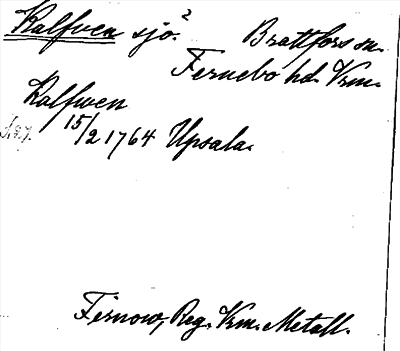 Kalfven sjö.² Brattfors sn.
Fernebo hd. Vrm.
Kalfwen
15/2 1764 Upsala.
Fernow, Reg. Vrm. Metall.